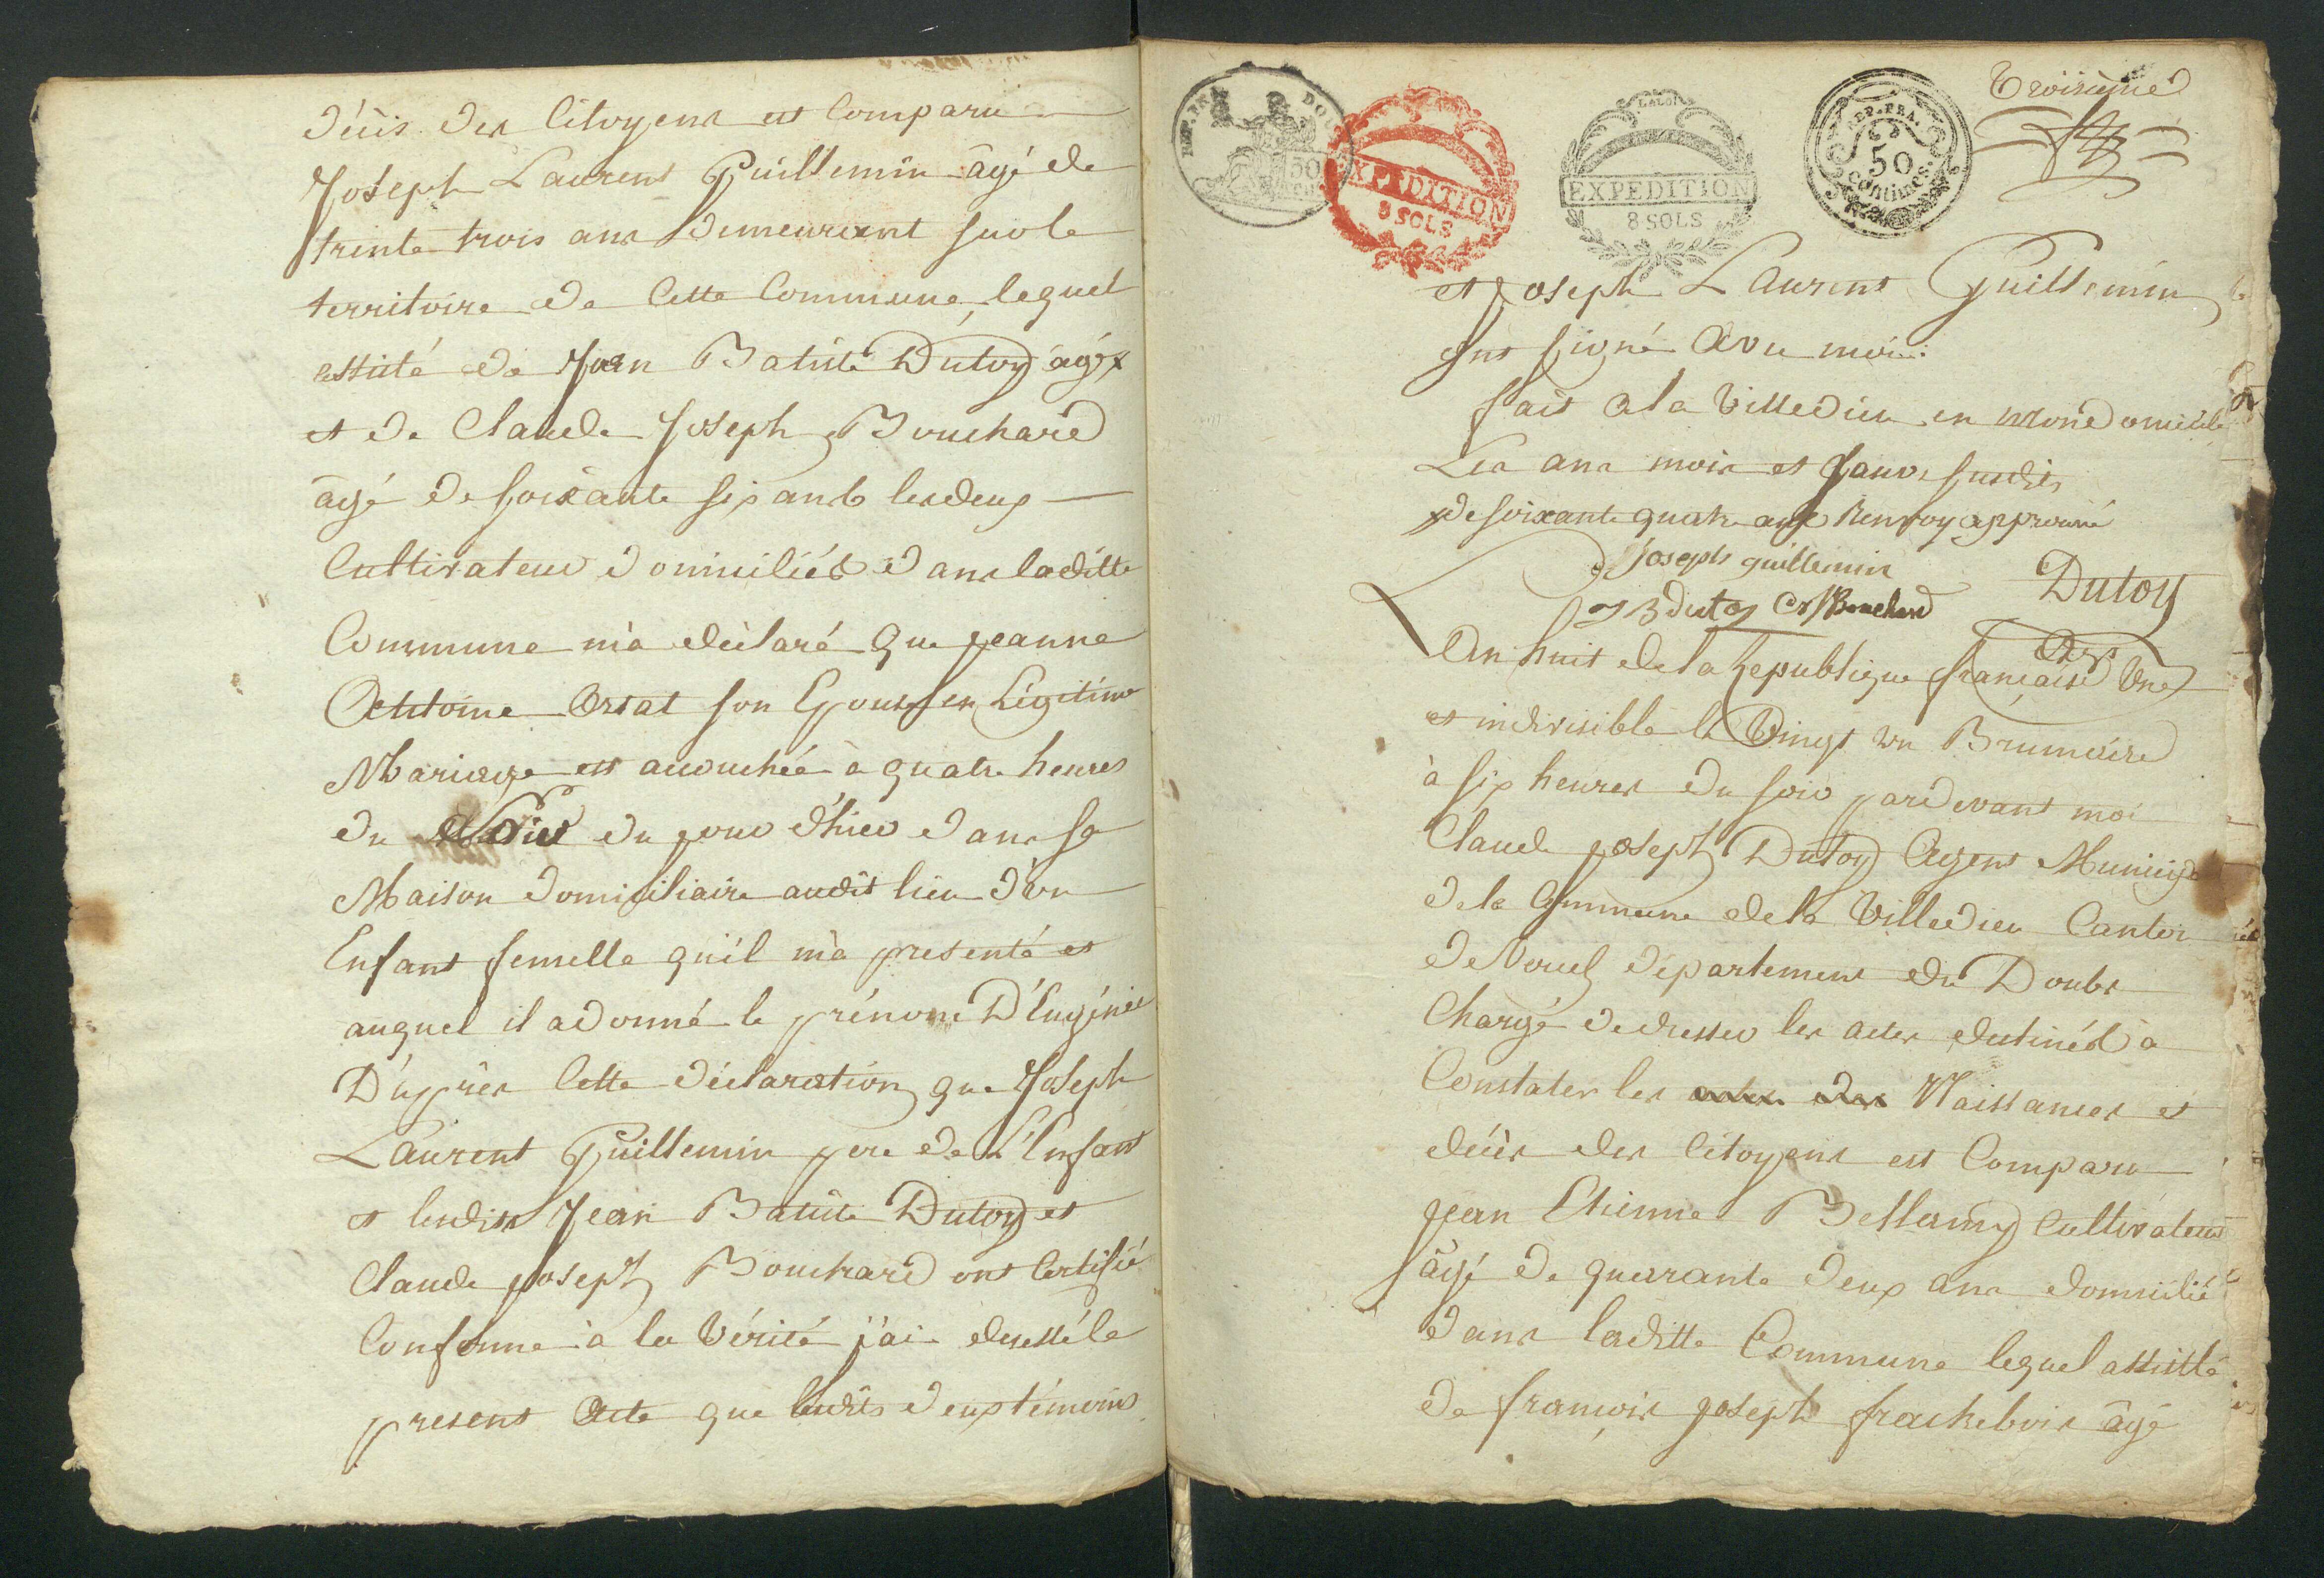 décès des Citoyens est Comparu
Joseph Laurent Guillemin âgé de
trente trois ans Demeurant sur le
territoire de Cette Commune, lequel
assisté de Jean Batiste Dutoy âgé x
et de Claude Joseph Bouchard
âgé de soixante six ans les deux
Cultivateur domiciliés dans laditte
Commune m'a déclaré que Jeanne
Antoine Orsat son Epouse en Légitime
Mariage est accouchée à quatre heures
du Soir du jour d'hier dans sa
Maison domiciliaire audit lieu d'un
Enfant femelle qu'il m'a presenté et
auquel il a donné le prénom D'Eugénie
D'après Cette déclaration que Joseph
Laurent Guillemin pere de L'Enfant
et lesdits Jean Batiste Dutoy et
Claude Joseph Bouchard ont Certifié
Conforme à la Vérité j'ai dressé le
present Acte que lesdits deux témoins
REP. FRA. DOUBS
50
EXPEDITION
8 SOLS
LA LOI
EXPEDITION
8 SOLS
REP. FRA.
50
Centimes.
Troisième
et Joseph Laurent Guillemin
ont signé Avec moi
fait a la Villedieu en mon domicile
Les ans mois et Jour susdits
x de soixante quatre ans Renvoy approuvé
Joseph guillemin
J B dutoy C J Bouchard Dutoy
Agt
L'An huit de la Republique française Une
et indivisible le Vingt un Brumaire
à six heures du soir pardevant moi
Claude Joseph Dutoy Agent Municipal
de la Commune de la Villedieu Canton
de Vercel département du Doubs
Chargé de dresser les actes destinés à
Constater les actes des Naissances et
décès des Citoyens est Comparu
Jean Etienne Bellamy Cultivateur
âgé de quarante deux ans domicilié
dans laditte Commune lequel assisté
de françois Joseph frachebois âgé